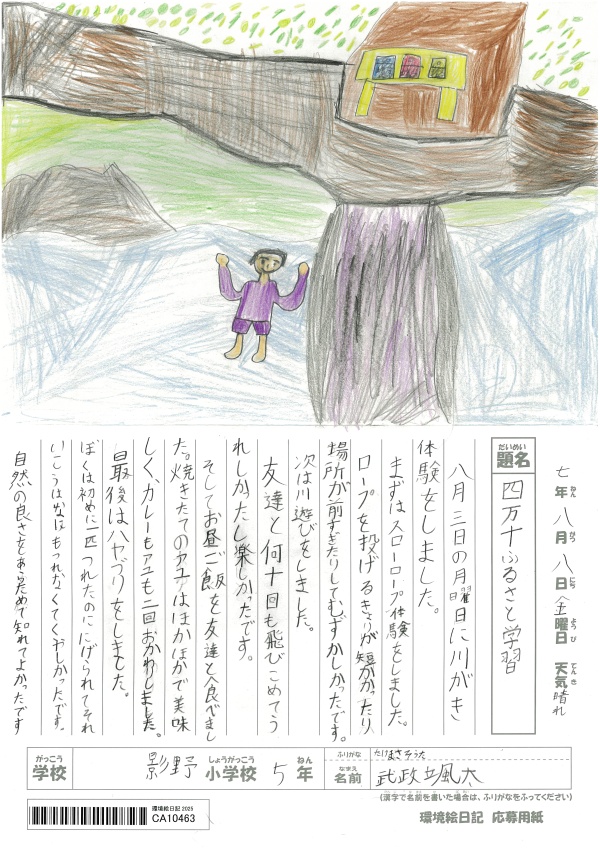 七年八月八日(金曜日 天気 晴れ
ねん がつ にち ようび てんき
だいめい
題名 四万十ふるさと学習
八月三日の月曜日に川がき
体験をしました。
まずはスローロープ体験をしました。
ロープを投げるきょりが短かかったり
場所が前すぎたりしてむずかしかったです。
次は川遊びをしました。
友達と何十回も飛びこめてう
れしかったし楽しかったです。
そしてお昼ご飯を友達と食べまし
た。焼きたてのアユはほかほかで美味
しく、カレーもアユも二回おかわりしました。
最後はハヤづりをしました。
ぼくは初めに一匹つれたのににげられてそれ
いこうはなにもつれなくてくやしかったです。
自然の良さをあらためて知れてよかったです
がっこう しょうがっこう ねん ふりがな たけまさそうた
学校 影野 小学校 5年 なまえ 名前 武政颯太
(漢字で名前を書いた場合は、ふりがなをふってください)
環境絵日記 2025
CA10463
環境絵日記 応募用紙